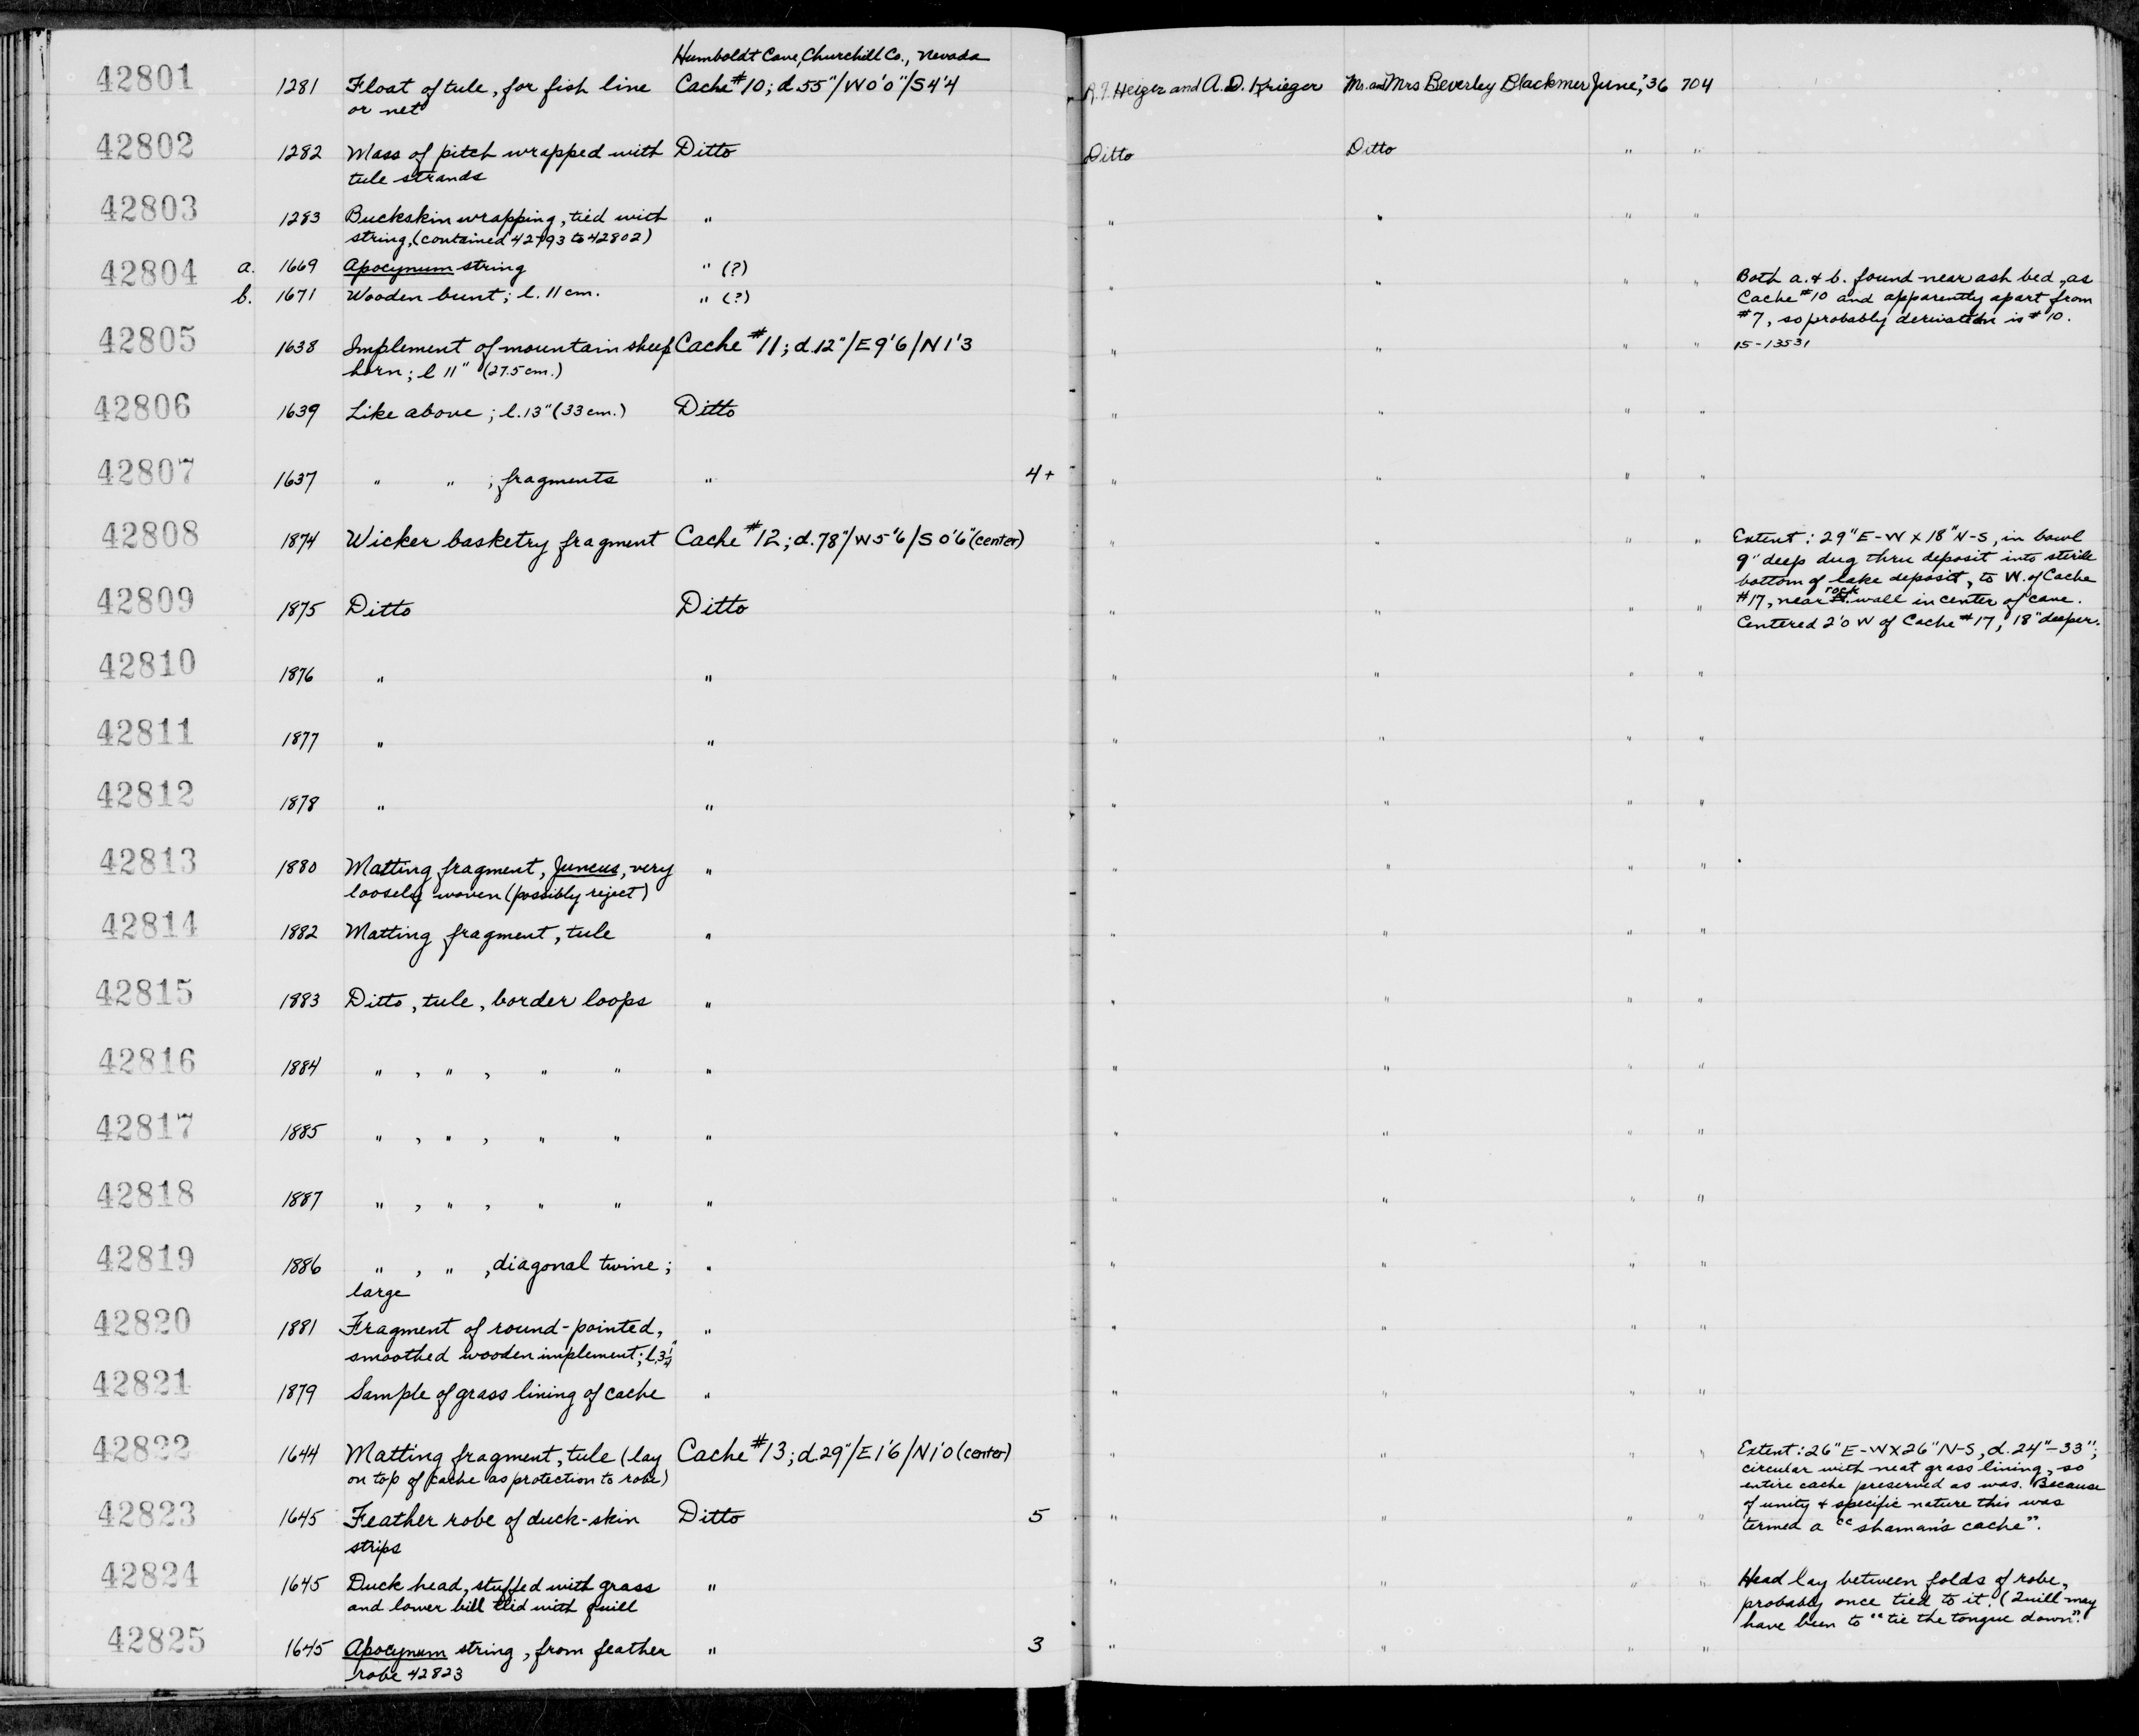 Humboldt Cave, Churchill Co., Nevada
42801 1281 Float of tule, for fish line Cache #10; d. 55"/W0'0"/S4'4 R.F. Heizer and A.D. Krieger Mr. and Mrs Beverley Blackmer June, '36 704
or net
42802 1282 Mass of pitch wrapped with Ditto Ditto Ditto " "
tule strands
42803 1283 Buckskin wrapping, tied with " " " " "
string, (contained 42793 to 42802)
42804 a. 1669 Apocynum string " (?) " " " " Both a. & b. found near ash bed, as
b. 1671 Wooden bunt; l. 11 cm. " (?) Cache #10 and apparently apart from
#7, so probably derivation is #10.
42805 1638 Implement of mountain sheep Cache #11; d. 12"/E9'6/N1'3 " " " " 15-13531
horn; l 11" (27.5 cm.)
42806 1639 Like above; l. 13" (33 cm.) Ditto " " " "
42807 1637 " " ; fragments " 4+ " " " "
42808 1874 Wicker basketry fragment Cache #12; d. 78"/W5'6/S0'6" (center) " " " " Extent: 29" E-W x 18" N-S, in bowl
9" deep dug thru deposit into sterile
bottom of lake deposit, to W. of Cache
42809 1875 Ditto Ditto " " " " #17, near rock wall in center of cave.
Centered 2'0 W of Cache #17, 18" deeper.
42810 1876 " " " " " "
42811 1877 " " " " " "
42812 1878 " " " " " "
42813 1880 Matting fragment, Juncus, very " " " " "
loosely woven (possibly reject)
42814 1882 Matting fragment, tule " " " " "
42815 1883 Ditto, tule, border loops " " " " "
42816 1884 " , " , " " " " " " "
42817 1885 " , " , " " " " " " "
42818 1887 " , " , " " " " " " "
42819 1886 " , " , diagonal twine; " " " " "
large
42820 1881 Fragment of round-pointed, " " " " "
smoothed wooden implement; l.
42821 1879 Sample of grass lining of cache " " " " "
42822 1644 Matting fragment, tule (lay Cache #13; d. 29"/E1'6/N1'0 (center) " " " " Extent: 26" E-W x 26" N-S, d. 24"-33";
on top of cache as protection to robe) circular with neat grass lining, so
entire cache preserved as was. Because
42823 1645 Feather robe of duck-skin Ditto 5 " " " " of unity & specific nature this was
strips termed a "shaman's cache".
42824 1645 Duck head, stuffed with grass " " " " " Head lay between folds of robe,
and lower bill tied with quill probably once tied to it. (Quill may
have been to "tie the tongue down".
42825 1645 Apocynum string, from feather " 3 " " " "
robe 42823